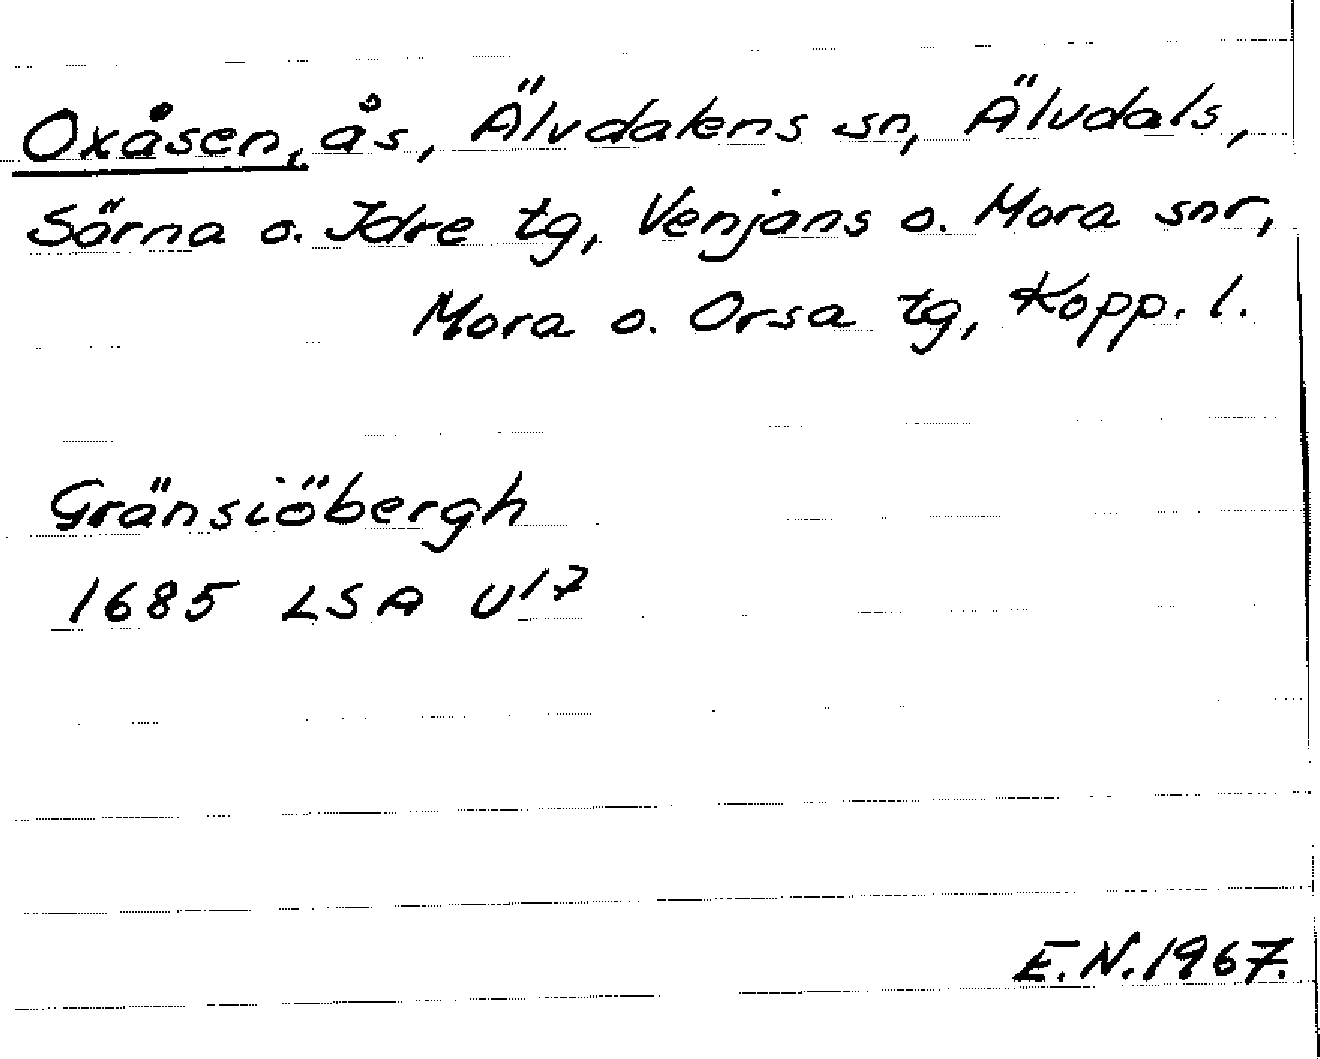 Oxåsen, ås, Älvdalens sn, Älvdals,
Särna o. Idre tg, Venjans o. Mora snr,
Mora o. Orsa tg, Kopp. l.
Gränsiöbergh
1685 LSA U17
E.N. 1967.